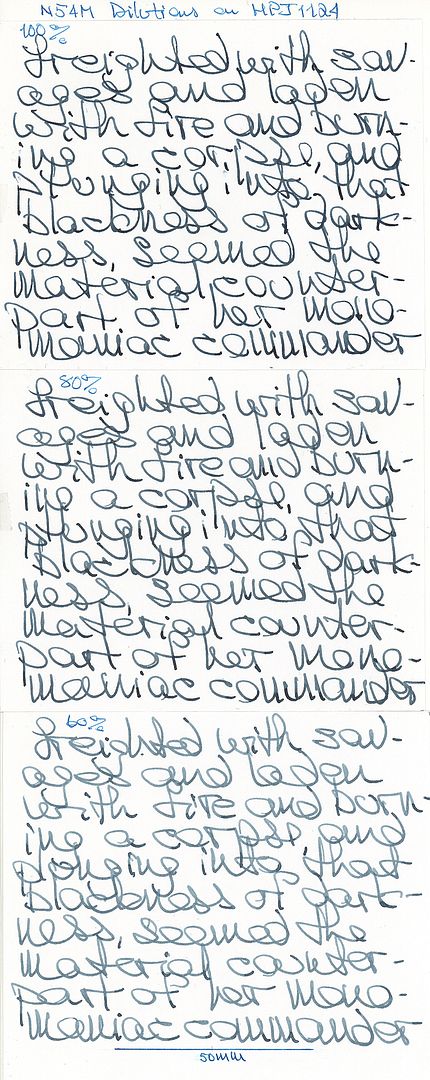 N54M Dilutions on HPJ1124
100%
freighted with sav-
ages and laden
with fire and burn-
ing a corpse, and
plunging into that
blackness of dark-
ness, seemed the
material counter-
part of her mono-
maniac commander
80%
freighted with sav-
ages and laden
with fire and burn-
ing a corpse, and
plunging into that
blackness of dark-
ness, seemed the
material counter-
part of her mono-
maniac commander
60%
freighted with sav-
ages and laden
with fire and burn-
ing a corpse, and
plunging into that
blackness of dark-
ness, seemed the
material counter-
part of her mono-
maniac commander
50mm